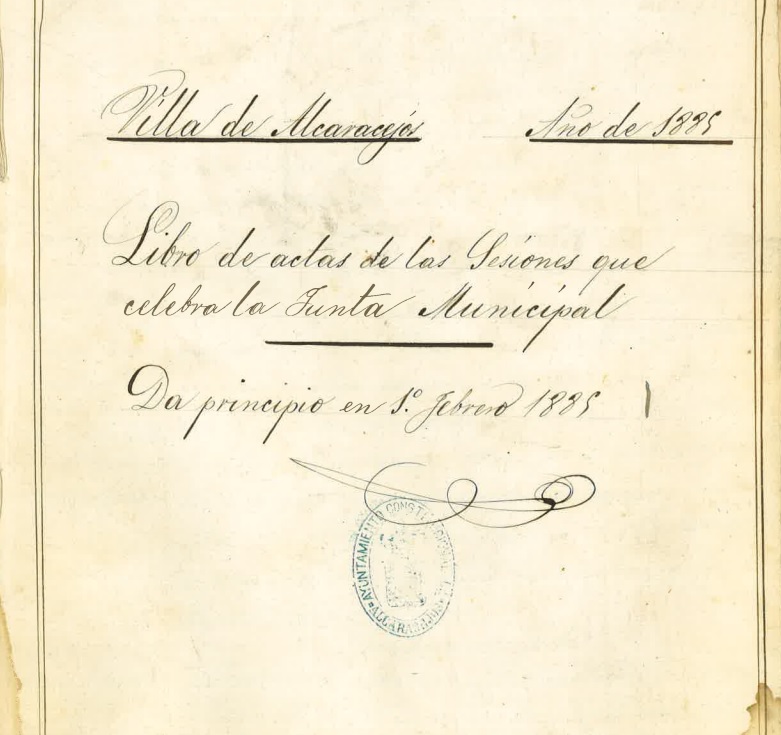 Villa de Alcaracejos Año de 1885
Libro de actas de las Sesiones que
celebra la Junta Municipal
Da principio en 1.º Febrero 1885
AYUNTAMIENTO CONSTITUCIONAL
ALCARACEJOS